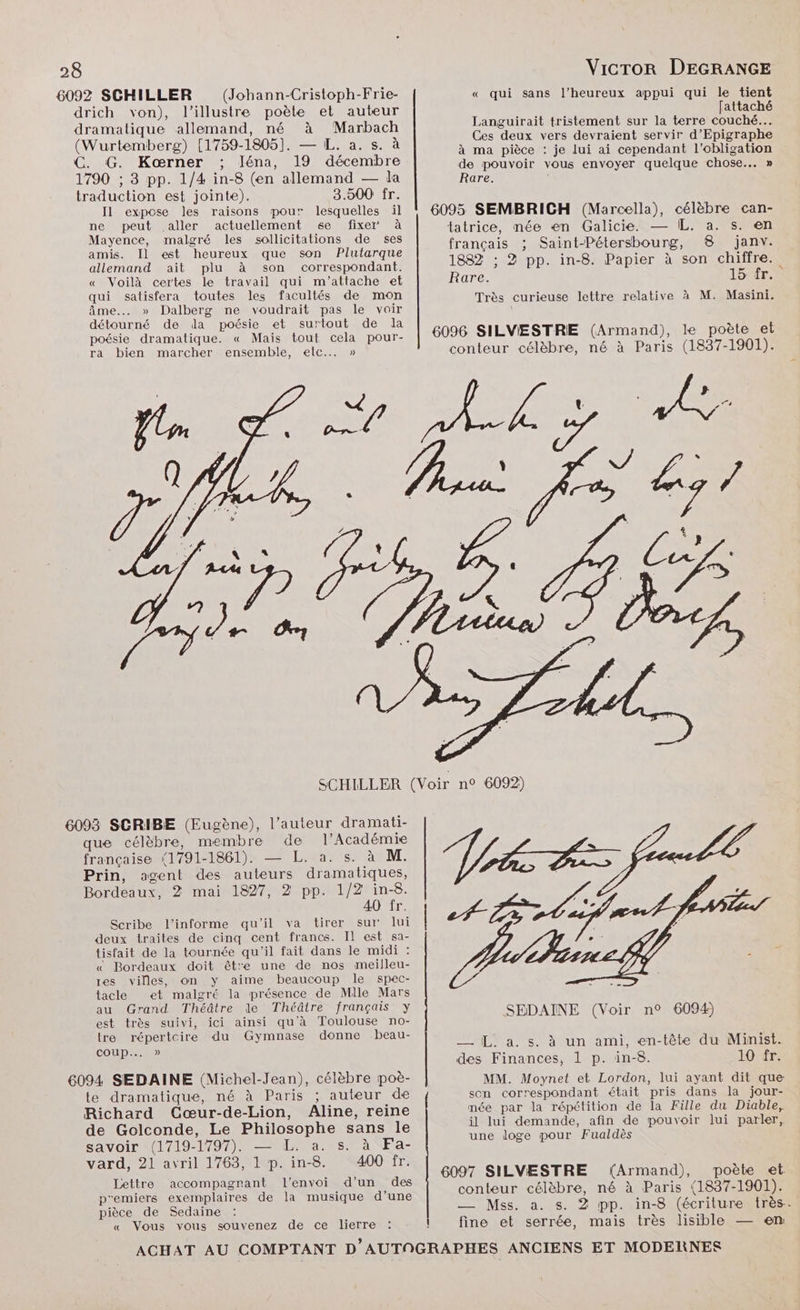 28
VICTOR DEGRANGE
6092 SCHILLER (Johann-Cristoph-Frie-
drich von), l'illustre poète et auteur
dramatique allemand, né à Marbach
(Wurtemberg) [1759-1805]. — L. a. s. à
C. G. Kœrner ; Iéna, 19 décembre
1790 ; 3 pp. 1/4 in-8 (en allemand — la
traduction est jointe). 3.500 fr.
Il expose les raisons pour lesquelles il
ne peut aller actuellement se fixer à
Mayence, malgré les sollicitations de ses
amis. Il est heureux que son Plutarque
allemand ait plu à son correspondant.
« Voilà certes le travail qui m'attache et
qui satisfera toutes les facultés de mon
âme... » Dalberg ne voudrait pas le voir
détourné de la poésie et surtout de la
poésie dramatique. « Mais tout cela pour-
ra bien marcher ensemble, etc... »
« qui sans l'heureux appui qui le tient
[attaché
Languirait tristement sur la terre couché...
Ces deux vers devraient servir d'Epigraphe
à ma pièce : je lui ai cependant l'obligation
de pouvoir vous envoyer quelque chose... »
Rare.
6095 SEMBRICH (Marcella), célèbre can-
tatrice, née en Galicie. — L. a. s. en
français ; Saint-Pétersbourg, 8 janv.
1882 ; 2 pp. in-8. Papier à son chiffre.
Rare. 15 fr.
Très curieuse lettre relative à M. Masini.
6096 SILVESTRE (Armand), le poète et
conteur célèbre, né à Paris (1837-1901).
SCHILLER (Voir n° 6092)
6093 SCRIBE (Eugène), l'auteur dramati-
que célèbre, membre de l'Académie
française (1791-1861). — L. a. s. à M.
Prin, agent des auteurs dramatiques,
Bordeaux, 2 mai 1827, 2 pp. 1/2 in-8.
40 fr.
Scribe l'informe qu'il va tirer sur lui
deux traites de cinq cent francs. Il est sa-
tisfait de la tournée qu'il fait dans le midi :
« Bordeaux doit être une de nos meilleu-
res villes, on y aime beaucoup le spec-
tacle et malgré la présence de Mlle Mars
au Grand Théâtre le Théâtre français y
est très suivi, ici ainsi qu'à Toulouse no-
tre répertoire du Gymnase donne beau-
coup... »
6094 SEDAINE (Michel-Jean), célèbre poè-
te dramatique, né à Paris ; auteur de
Richard Cœur-de-Lion, Aline, reine
de Golconde, Le Philosophe sans le
savoir (1719-1797). — L. a. s. à Fa-
vard, 21 avril 1763, 1 p. in-8. 400 fr.
Lettre accompagnant l'envoi d'un des
premiers exemplaires de la musique d'une
pièce de Sedaine :
« Vous vous souvenez de ce lierre :
SEDAINE (Voir n° 6094)
— L. a. s. à un ami, en-tête du Minist.
des Finances, 1 p. in-8. 10 fr.
MM. Moynet et Lordon, lui ayant dit que
son correspondant était pris dans la jour-
née par la répétition de la Fille du Diable,
il lui demande, afin de pouvoir lui parler,
une loge pour Fualdès
6097 SILVESTRE (Armand), poète et
conteur célèbre, né à Paris (1837-1901).
— Mss. a. s. 2 pp. in-8 (écriture très
fine et serrée, mais très lisible — en
ACHAT AU COMPTANT D'AUTOGRAPHES ANCIENS ET MODERNES